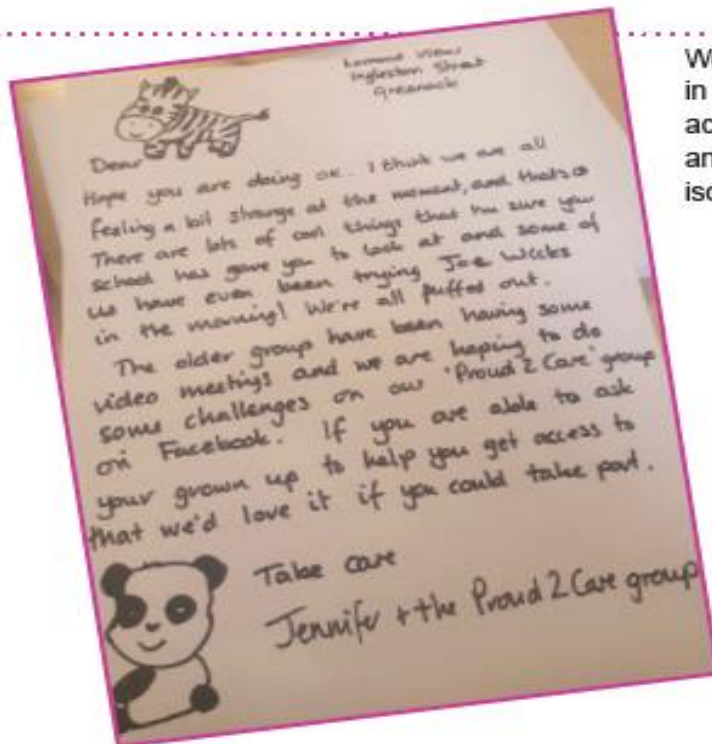 Lomond View
Ingleston Street
Greenock
Dear
Hope you are doing ok.. I think we are all
feeling a bit strange at the moment, and thats ok
There are lots of cool things that I'm sure your
school has gave you to look at and some of
us have even been trying Joe Wicks
in the morning! We're all puffed out.
The older group have been having some
video meetings and we are hoping to do
some challenges on our 'Proud 2 Care' group
on Facebook. If you are able to ask
your grown up to help you get access to
that we'd love it if you could take part.
Take care
Jennifer + the Proud 2 Care group
in